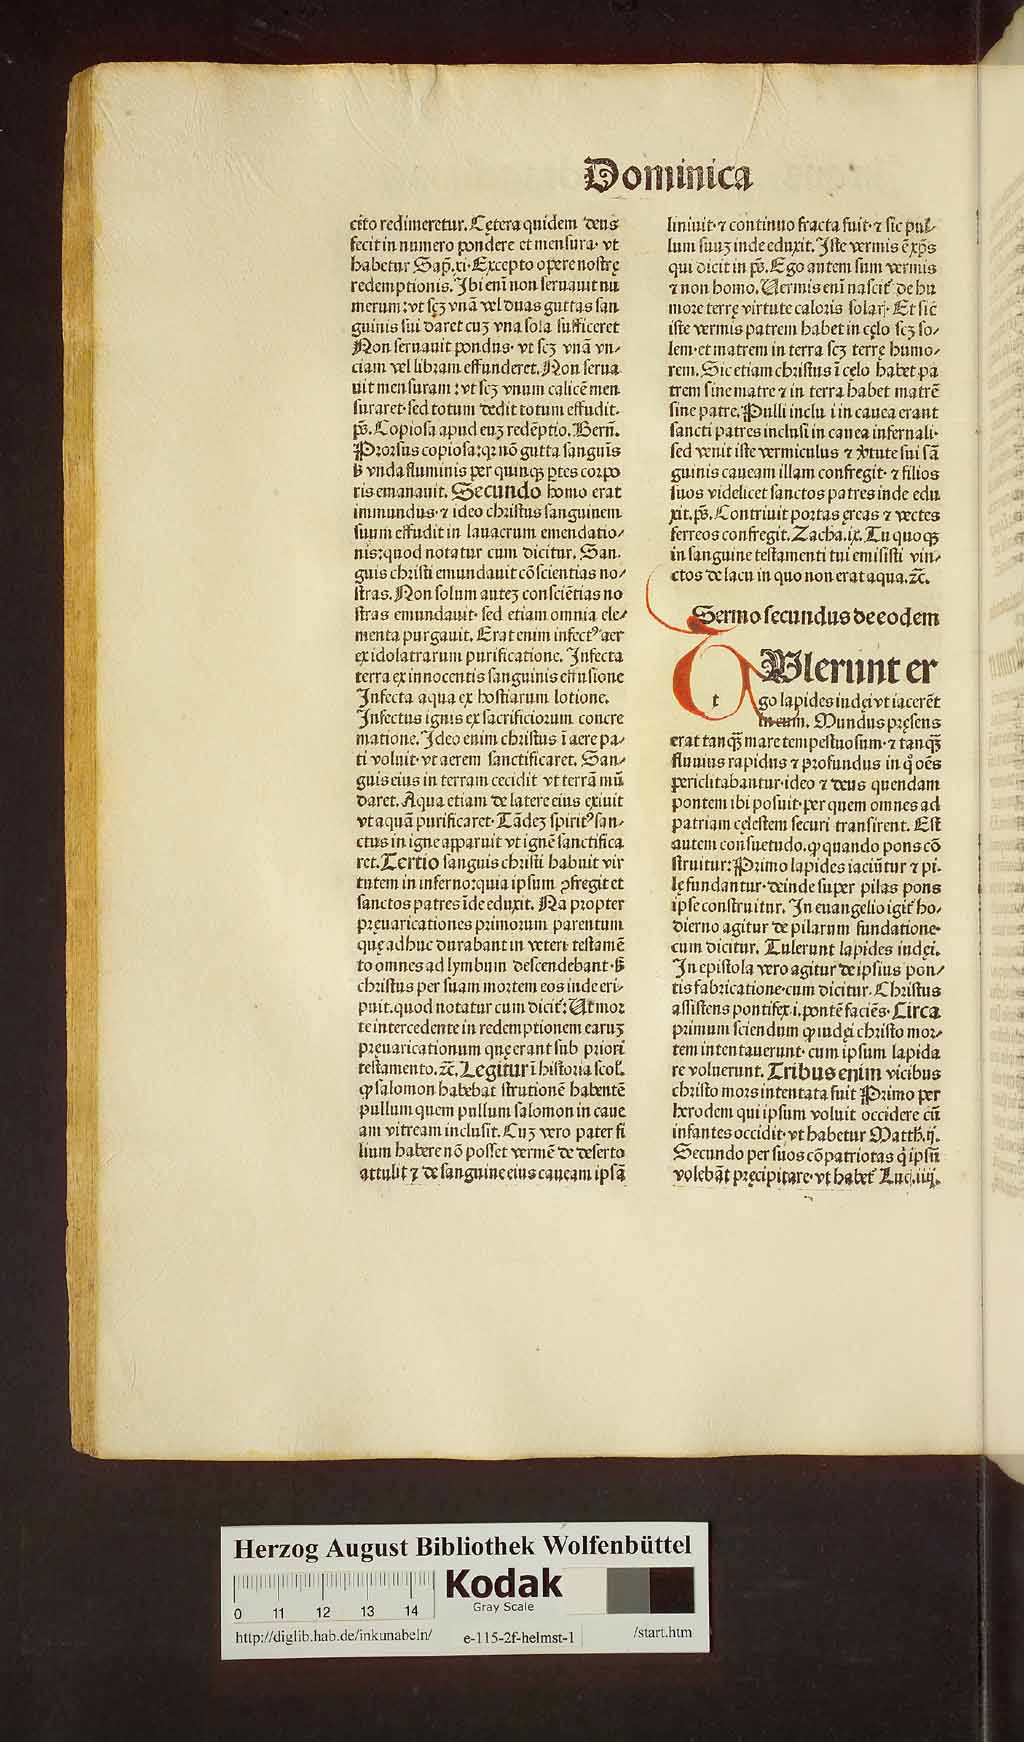 Dominica
cito redimeretur. Cętera quidem deus
fecit in numero pondere et mensura· vt
habetur Sap̄. xi· Excepto opere nostrę
redemptionis. Ibi eni᷑ non seruauit nu
merum: vt scʒ vnā vel duas guttas san
guinis sui daret cuʒ vna sola sufficeret
Non seruauit pondus· vt scʒ vnā vn⸗
ciam vel libram effunderet. Non serua
uit mensuram: vt scʒ vnum calicē men
suraret· sed totum dedit totum effudit·
pˢ. Copiosa apud euʒ redēptio. Bern̄.
Prorsus copiosa: qꝛ nō gutta sanguīs
ß vnda fluminis per quinqꝫ ꝑtes corpo
ris emanauit. Secundo homo erat
inmundus· ⁊ ideo christus sanguinem
suum effudit in lauacrum emendatio⸗
nis: quod notatur cum dicitur. San⸗
guis christi emundauit cōscientias no⸗
stras. Non solum auteʒ consciētias no
stras emundauit· sed etiam omnia ele⸗
menta purgauit. Erat enim infectꝰ aer
ex idolatrarum purificatione. Infecta
terra ex innocentis sanguinis effusione
Infecta aqua ex hostiarum lotione.
Infectus ignis ex sacrificiorum concre
matione. Ideo enim christus ī aere pa⸗
ti voluit· vt aerem sanctificaret. San⸗
guis eius in terram cecidit vt terrā mū
daret. Aqua etiam de latere eius exiuit
vt aquā purificaret· Tādeʒ spiritꝰ san⸗
ctus in igne apparuit vt ignē sanctifica
ret. Tertio sanguis christi habuit vir
tutem in inferno: quia ipsum ꝯfregit et
sanctos patres īde eduxit. Na propter
pręuaricationes primorum parentum
quę adhuc durabant in veteri testamē
to omnes ad lymbum descendebant· ß
christus per suam mortem eos inde eri⸗
puit. quod notatur cum dicit᷑: Ut mor
te intercedente in redemptionem earuʒ
pręuaricationum quę erant sub priori
testamento. ⁊c̄. Legitur ī historia scol᷑.
ꝙ salomon habebat strutionē habentē
pullum quem pullum salomon in caue
am vitream inclusit. Cuʒ vero pater fi
lium habere nō posset vermē de deserto
attulit ⁊ de sanguine eius caueam ipsā
liniuit· ⁊ continuo fracta fuit· ⁊ sic pul⸗
lum suuʒ inde eduxit. Iste vermis ē xp̄s
qui dicit in pˢ. Ego autem sum vermis
⁊ non homo. Uermis eni᷑ nascit᷑ de hu
more terrę virtute caloris solarꝭ· Et sic
iste vermis patrem habet in cęlo scʒ so⸗
lem· et matrem in terra scʒ terrę humo⸗
rem. Sic etiam christus ī cęlo habet pa
trem sine matre ⁊ in terra habet matrē
sine patre. Pulli inclu i in cauea erant
sancti patres inclusi in cauea infernali·
sed venit iste vermiculus ⁊ v̓tute sui sā
guinis caueam illam confregit· ⁊ filios
suos videlicet sanctos patres inde edu
xit. pˢ. Contriuit portas ęreas ⁊ vectes
ferreos confregit. Zacha. ix. Tu quoqꝫ
in sanguine testamenti tui emisisti vin⸗
ctos de lacu in quo non erat aqua. ⁊c̄.
Sermo secundus de eodem
T Ulerunt er
t go lapides iudęi vt iacerēt
in eum. Mundus pręsens
erat tanqꝫ mare tempestuosum· ⁊ tanqꝫ
fluuius rapidus ⁊ profundus in qͦ oēs
periclitabantur· ideo ⁊ deus quendam
pontem ibi posuit· per quem omnes ad
patriam cęlestem securi transirent. Est
autem consuetudo. ꝙ quando pons cō
struitur: Primo lapides iaciūtur ⁊ pi⸗
lę fundantur· deinde super pilas pons
ipse construitur. In euangelio igit᷑ ho⸗
dierno agitur de pilarum fundatione·
cum dicitur. Tulerunt lapides iudęi.
In epistola vero agitur de ipsius pon⸗
tis fabricatione· cum dicitur. Christus
assistens pontifex .i. pontē faciēs· Circa
primum sciendum ꝙ iudęi christo mor⸗
tem intentauerunt· cum ipsum lapida
re voluerunt. Tribus enim vicibus
christo mors intentata fuit Primo per
herodem qui ipsum voluit occidere cū
infantes occidit· vt habetur Matth. ij.
Secundo per suos cōpatriotas qͥ ipsū
volebāt pręcipitare· vt habet᷑ Lucꝭ. iiij.
Herzog August Bibliothek Wolfenbüttel
Kodak
Gray Scale
0 11 12 13 14
http://diglib.hab.de/inkunabeln/ e-115-2f-helmst-1 /start.htm